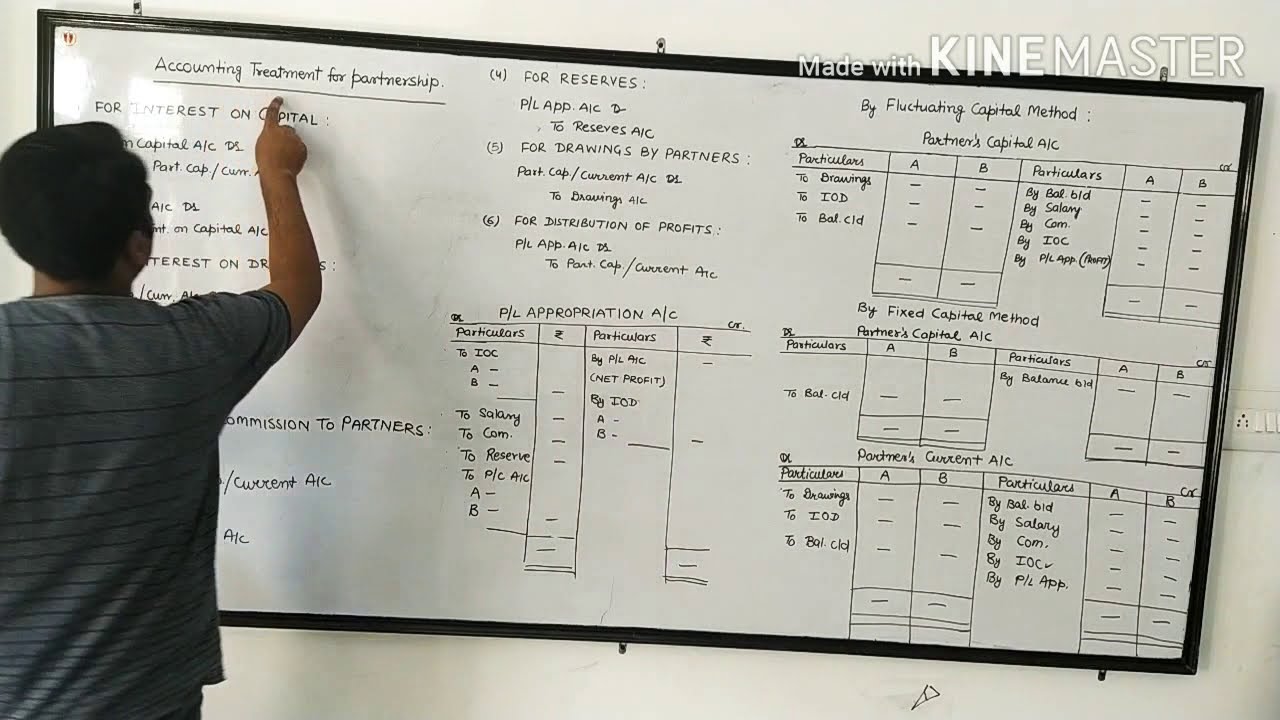 Made with KINEMASTER
Accounting Treatment for partnership.
FOR INTEREST ON CAPITAL :
on Capital A/c Dr
Part. Cap/Curr. A
A/c Dr
nt. on Capital A/c
TEREST ON DR S :
/Curr. A/c
OMMISSION TO PARTNERS :
/Current A/c
A/c
(4) FOR RESERVES :
P/L App. A/c D
To Reseves A/c
(5) FOR DRAWINGS BY PARTNERS :
Part. Cap/Current A/c Dr
To Drawings A/c
(6) FOR DISTRIBUTION OF PROFITS :
P/L App. A/c Dr
To Part. Cap./Current A/c
P/L APPROPRIATION A/C
Dr Cr.
Particulars ₹ Particulars ₹
To IOC By P/L A/c —
A — (NET PROFIT)
B — —
By IOD
To Salary — A —
To Com. — B — —
To Reserve —
To P/C A/c
A —
B — —
— —
By Fluctuating Capital Method :
Partner's Capital A/c
Dr Cr
Particulars A B Particulars A B
To Drawings — — By Bal. b/d — —
To IOD — — By Salary — —
To Bal. c/d — — By Com. — —
By IOC — —
By P/L App. (PROFIT) — —
— — —
By Fixed Capital Method
Partner's Capital A/c
Dr Cr
Particulars A B Particulars A B
By Balance b/d — —
To Bal. c/d — —
— — — —
Partner's Current A/c
Dr Cr
Particulars A B Particulars A B
To Drawings — — By Bal. b/d — —
To IOD — — By Salary — —
To Bal. c/d — — By Com. — —
By IOC — —
By P/L App. — —
— — — —